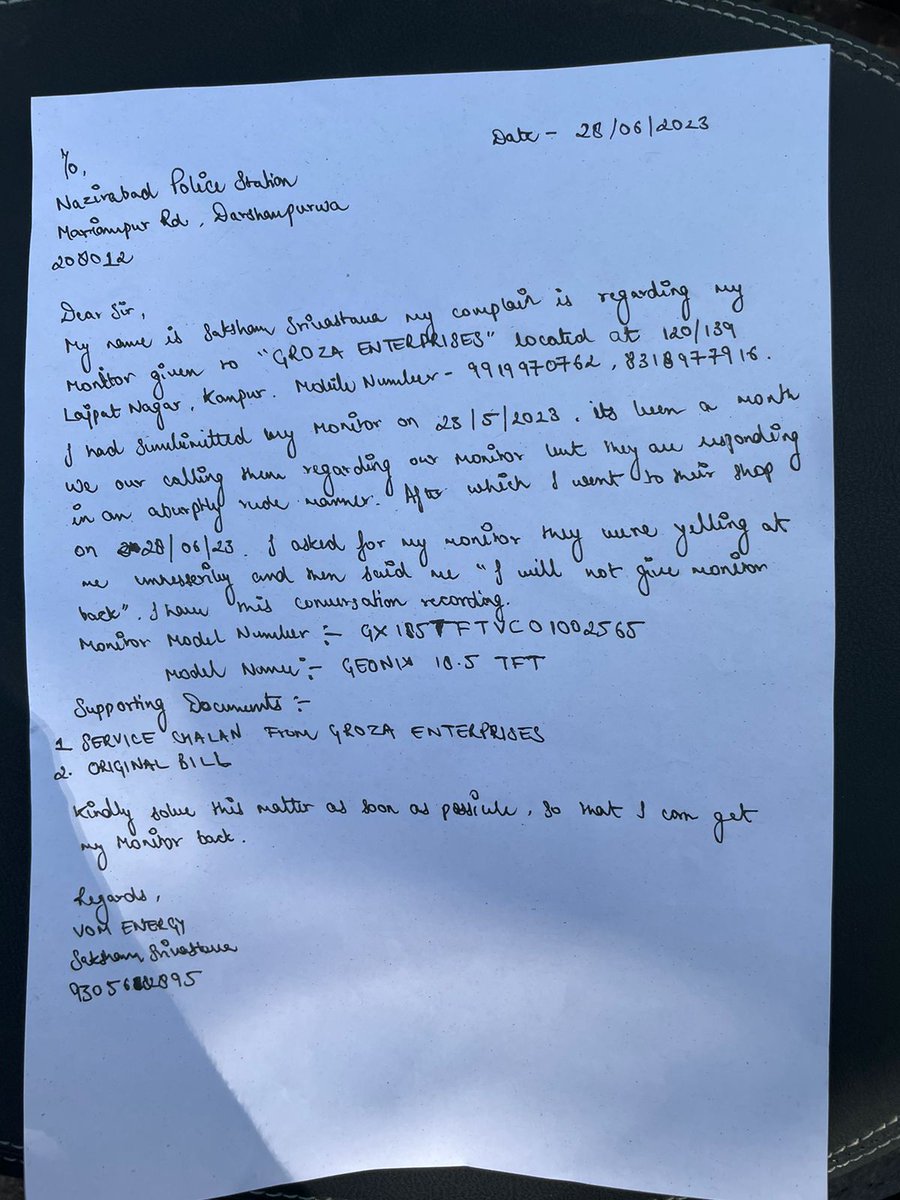 Date - 28/06/2023
To,
Nazirabad Police Station
Mariampur Rd, Darshanpurwa
208012
Dear Sir,
My name is Saksham Srivastava my complain is regarding my
monitor given to "GROZA ENTERPRISES" located at 120/139
Lajpat Nagar, Kanpur. Mobile Number - 9919970762, 8318977916.
I had sumbimitted my monitor on 23/5/2023. its been a month
we our calling them regarding our monitor but they are responding
in an aburphly rude manner. After which I went to their shop
on 28/06/23. I asked for my monitor they were yelling at
me unnesserily and then said me "I will not give monitor
back". I have this conversation recording.
Monitor Model Number :- GX185TFTVC01002565
Model Name :- GEONIX 18.5 TFT
Supporting Documents :-
1. SERVICE CHALAN From GROZA ENTERPRISES
2. ORIGINAL BILL
Kindly solve this matter as soon as possible, so that I can get
my monitor back.
Regards,
VOM ENERGY
Saksham Srivastava